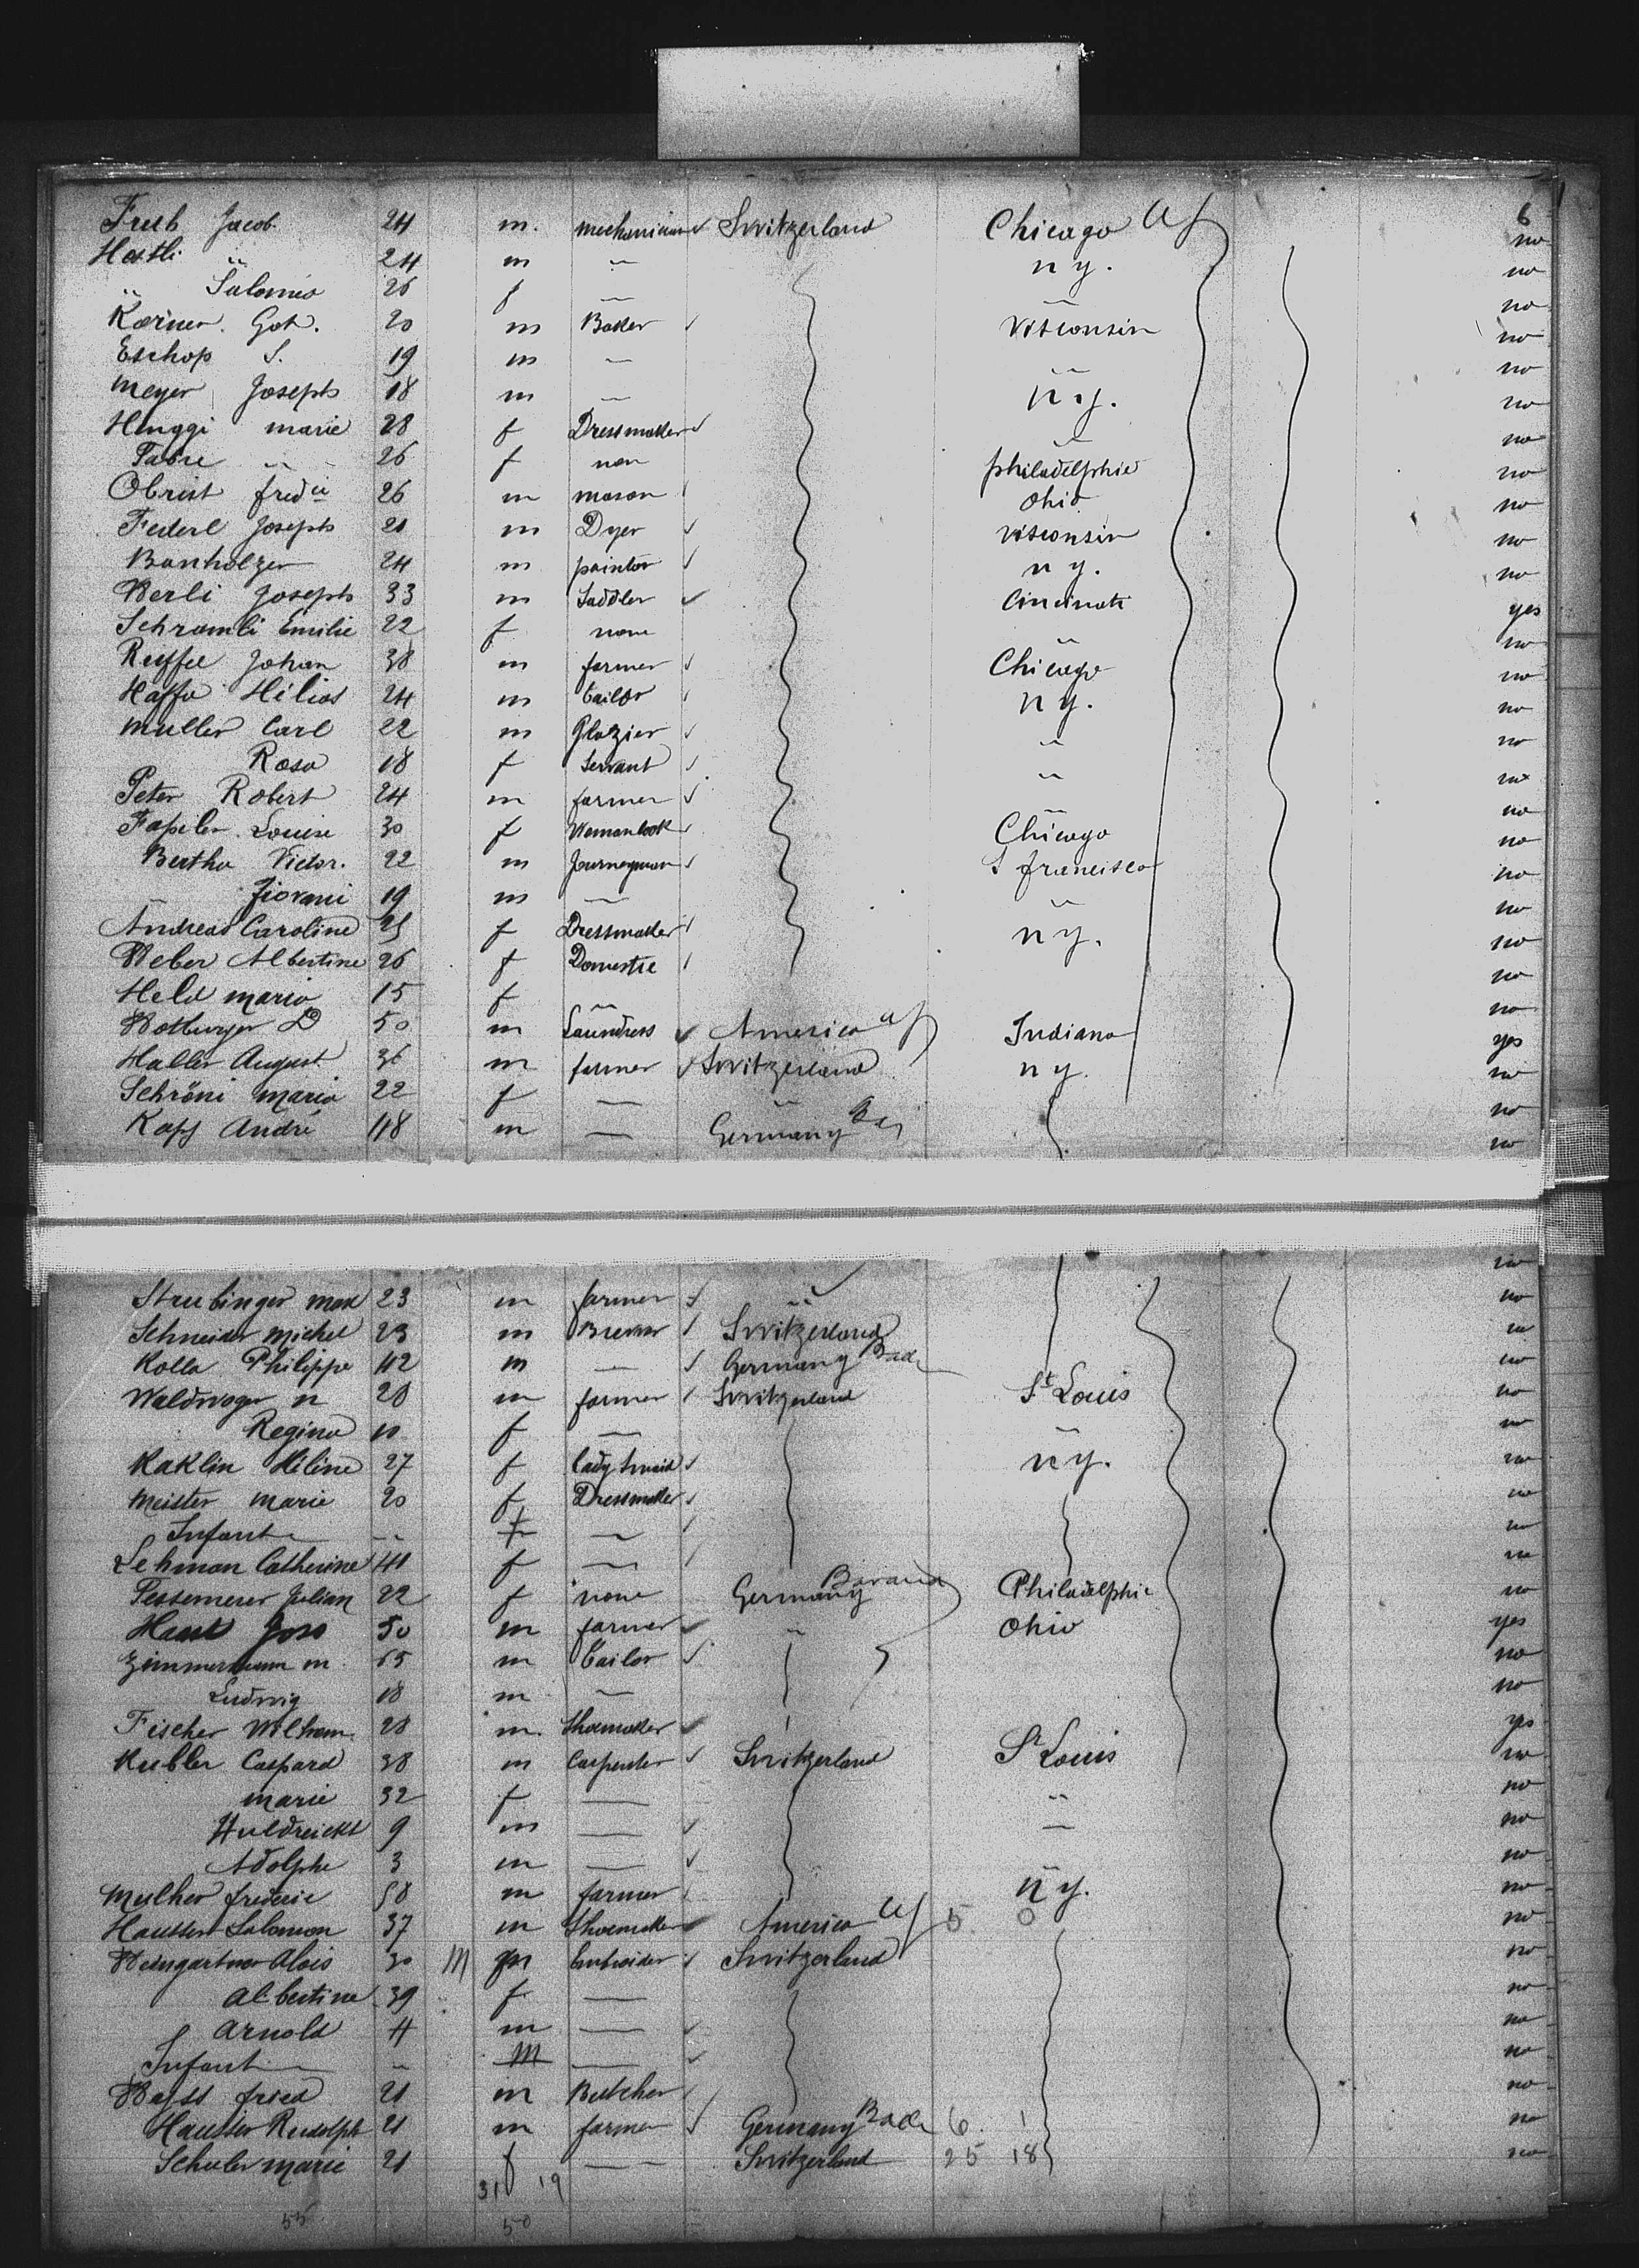 6
Frub Jacob. 24 m. mechanician Switzerland Chicago no
Hostli " 24 m " n y. no
" Salomea 26 f — " no
Korner. Got. 20 m Baker Visconsin no
Eschop S. 19 m — " no
Meyer Joseph 18 m — n y. no
Hinggi marie 28 f Dressmaker " no
Fabre " " 26 f non philadelphie no
Obrist fred 26 m mason Ohio no
Federl Joseph 21 m Dyer Visconsin no
Bonholzer 24 m painter n y. no
Werli Joseph 33 m Saddler Cincinati yes
Schramli Emilie 22 f none " no
Ruffel Johan 38 m farmer Chicago no
Haffa Hélias 24 m tailor n y. no
Muller Carl 22 m Glazier " no
Rosa 18 f Servant " no
Peter Robert 24 m farmer " no
Louise 30 f Womancook Chicago no
Bertha Victor. 22 m Journeyman S francisco no
Jiovani 19 m — " no
Andreas Caroline 25 f Dressmaker n y. no
Weber Albertine 26 f Domestic no
Held maria 15 f " no
50 m Laundress America Indiana yes
Haller August 36 m farmer Switzerland n y. no
Schröni maria 22 f — " no
Kapf André 48 m — Germany no
no
Strubinger max 23 m farmer " no
Schneider Michel 23 m Brewer Switzerland no
Kolla Philippe 42 m — Germany Bade no
Waldvoger n 28 m farmer Switzerland St Louis no
Regina 10 f — no
Kaklin Hélène 27 f lady's maid n y. no
Meister marie 20 f Dressmaker no
Infant " f — no
Lehman Catherine 41 f — no
Julian 22 f none Germany Bavaria Philadelphie no
Haut Joso 50 m farmer " Ohio yes
Zimmermann m 65 m tailor no
Ludwig 18 m — no
Fischer Wilham. 28 m. Shoemaker yes
Kubler Caspard 38 m Carpenter Switzerland St Louis no
marie 32 f — " no
Huldreickt 9 m — — no
Adolphe 3 m — no
Mulher frederic 58 m farmer n y. no
Hausser Salomon 37 m Shoemaker America 5 0 no
Weingartner Alois 30 M m Embroider Switzerland no
Albertine 39 " f — no
Arnold 4 m — no
Infant " m — no
Wayss fried 21 m Butcher no
Hausser Rudolph 21 m farmer Germany Bade 6. 1 no
Schuler marie 21 f — Switzerland 25 18 no
31 19
55 50